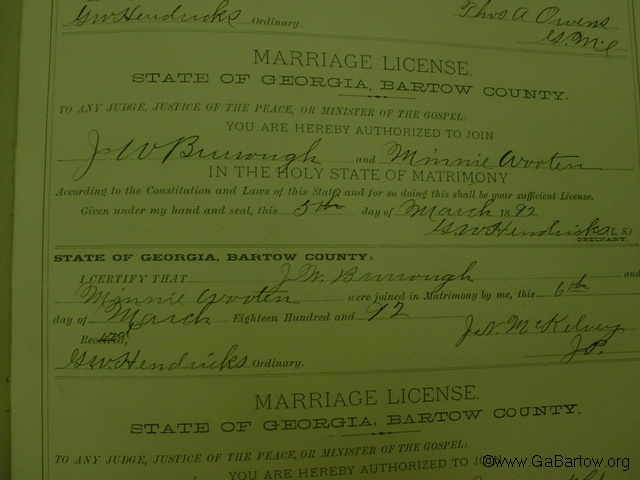 GW Hendricks Ordinary.
Thos A Owens
G. M. C
MARRIAGE LICENSE.
STATE OF GEORGIA, BARTOW COUNTY.
TO ANY JUDGE, JUSTICE OF THE PEACE, OR MINISTER OF THE GOSPEL:
YOU ARE HEREBY AUTHORIZED TO JOIN
J W Burrough and Minnie Wooten
IN THE HOLY STATE OF MATRIMONY
According to the Constitution and Laws of this State, and for so doing this shall be your sufficient License.
Given under my hand and seal, this 5th day of March 1892
G.W. Hendricks (L. S.)
ORDINARY.
STATE OF GEORGIA, BARTOW COUNTY:
I CERTIFY THAT J. W. Burrough and
Minnie Wooten were joined in Matrimony by me, this 6th
day of March Eighteen Hundred and 92
J. N. McKelvey
J.P.
Received,
G.W. Hendricks Ordinary.
MARRIAGE LICENSE.
STATE OF GEORGIA, BARTOW COUNTY.
TO ANY JUDGE, JUSTICE OF THE PEACE, OR MINISTER OF THE GOSPEL:
YOU ARE HEREBY AUTHORIZED TO JOIN
©www.GaBartow.org